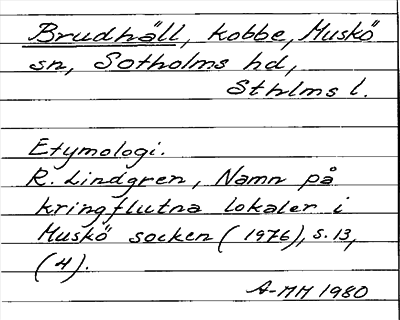 Brudhäll, kobbe, Muskö
sn, Sotholms hd,
Sthlms l.
Etymologi.
R. Lindgren, Namn på
kringflutna lokaler i
Muskö socken (1976), s. 13,
(4).
A-MM 1980